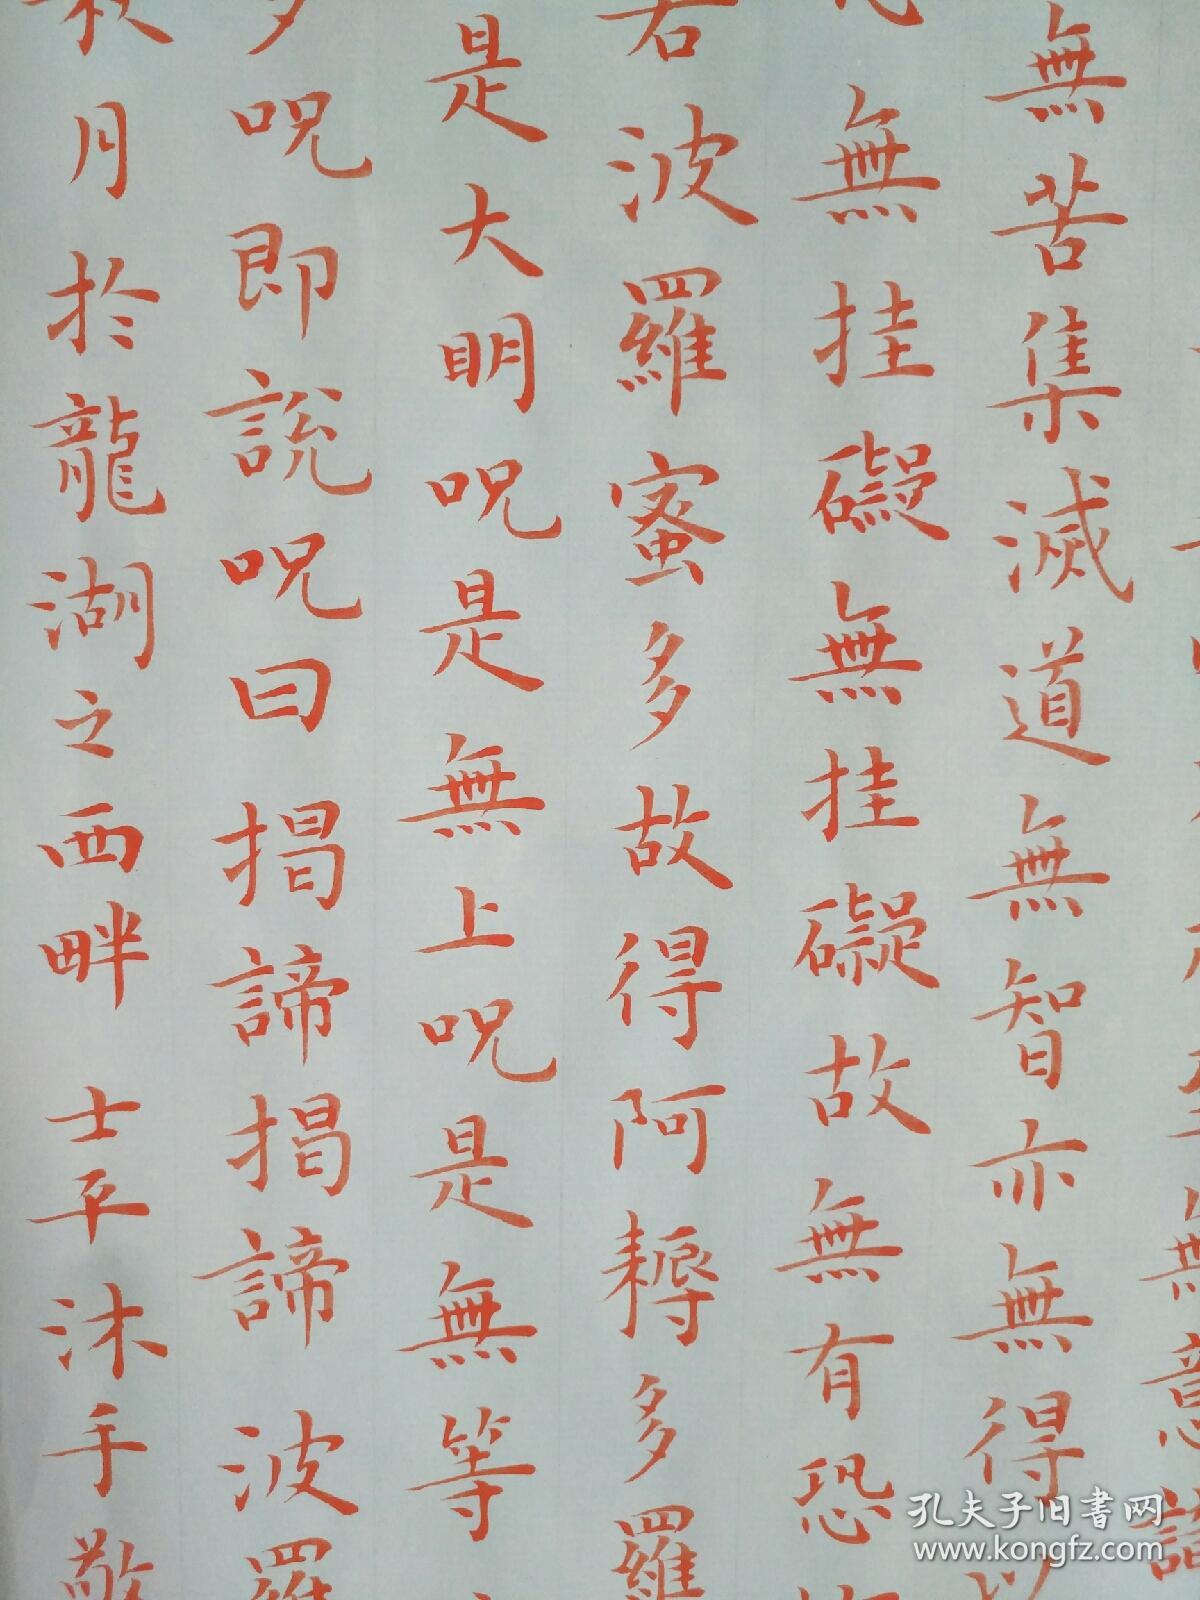 無意
無苦集滅道無智亦無得以
無挂礙無挂礙故無有恐
若波羅蜜多故得阿耨多羅
是大明呪是無上呪是無等
多呪即說呪曰揭諦揭諦波羅
秋月於龍湖之西畔 士平沐手敬
孔夫子旧书网
www.kongfz.com